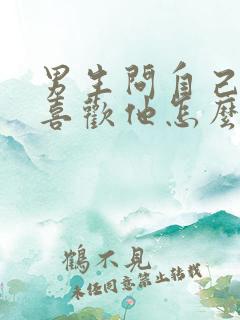 男生問自己
喜歡他怎麼
鶴不見
未經同意禁止轉載